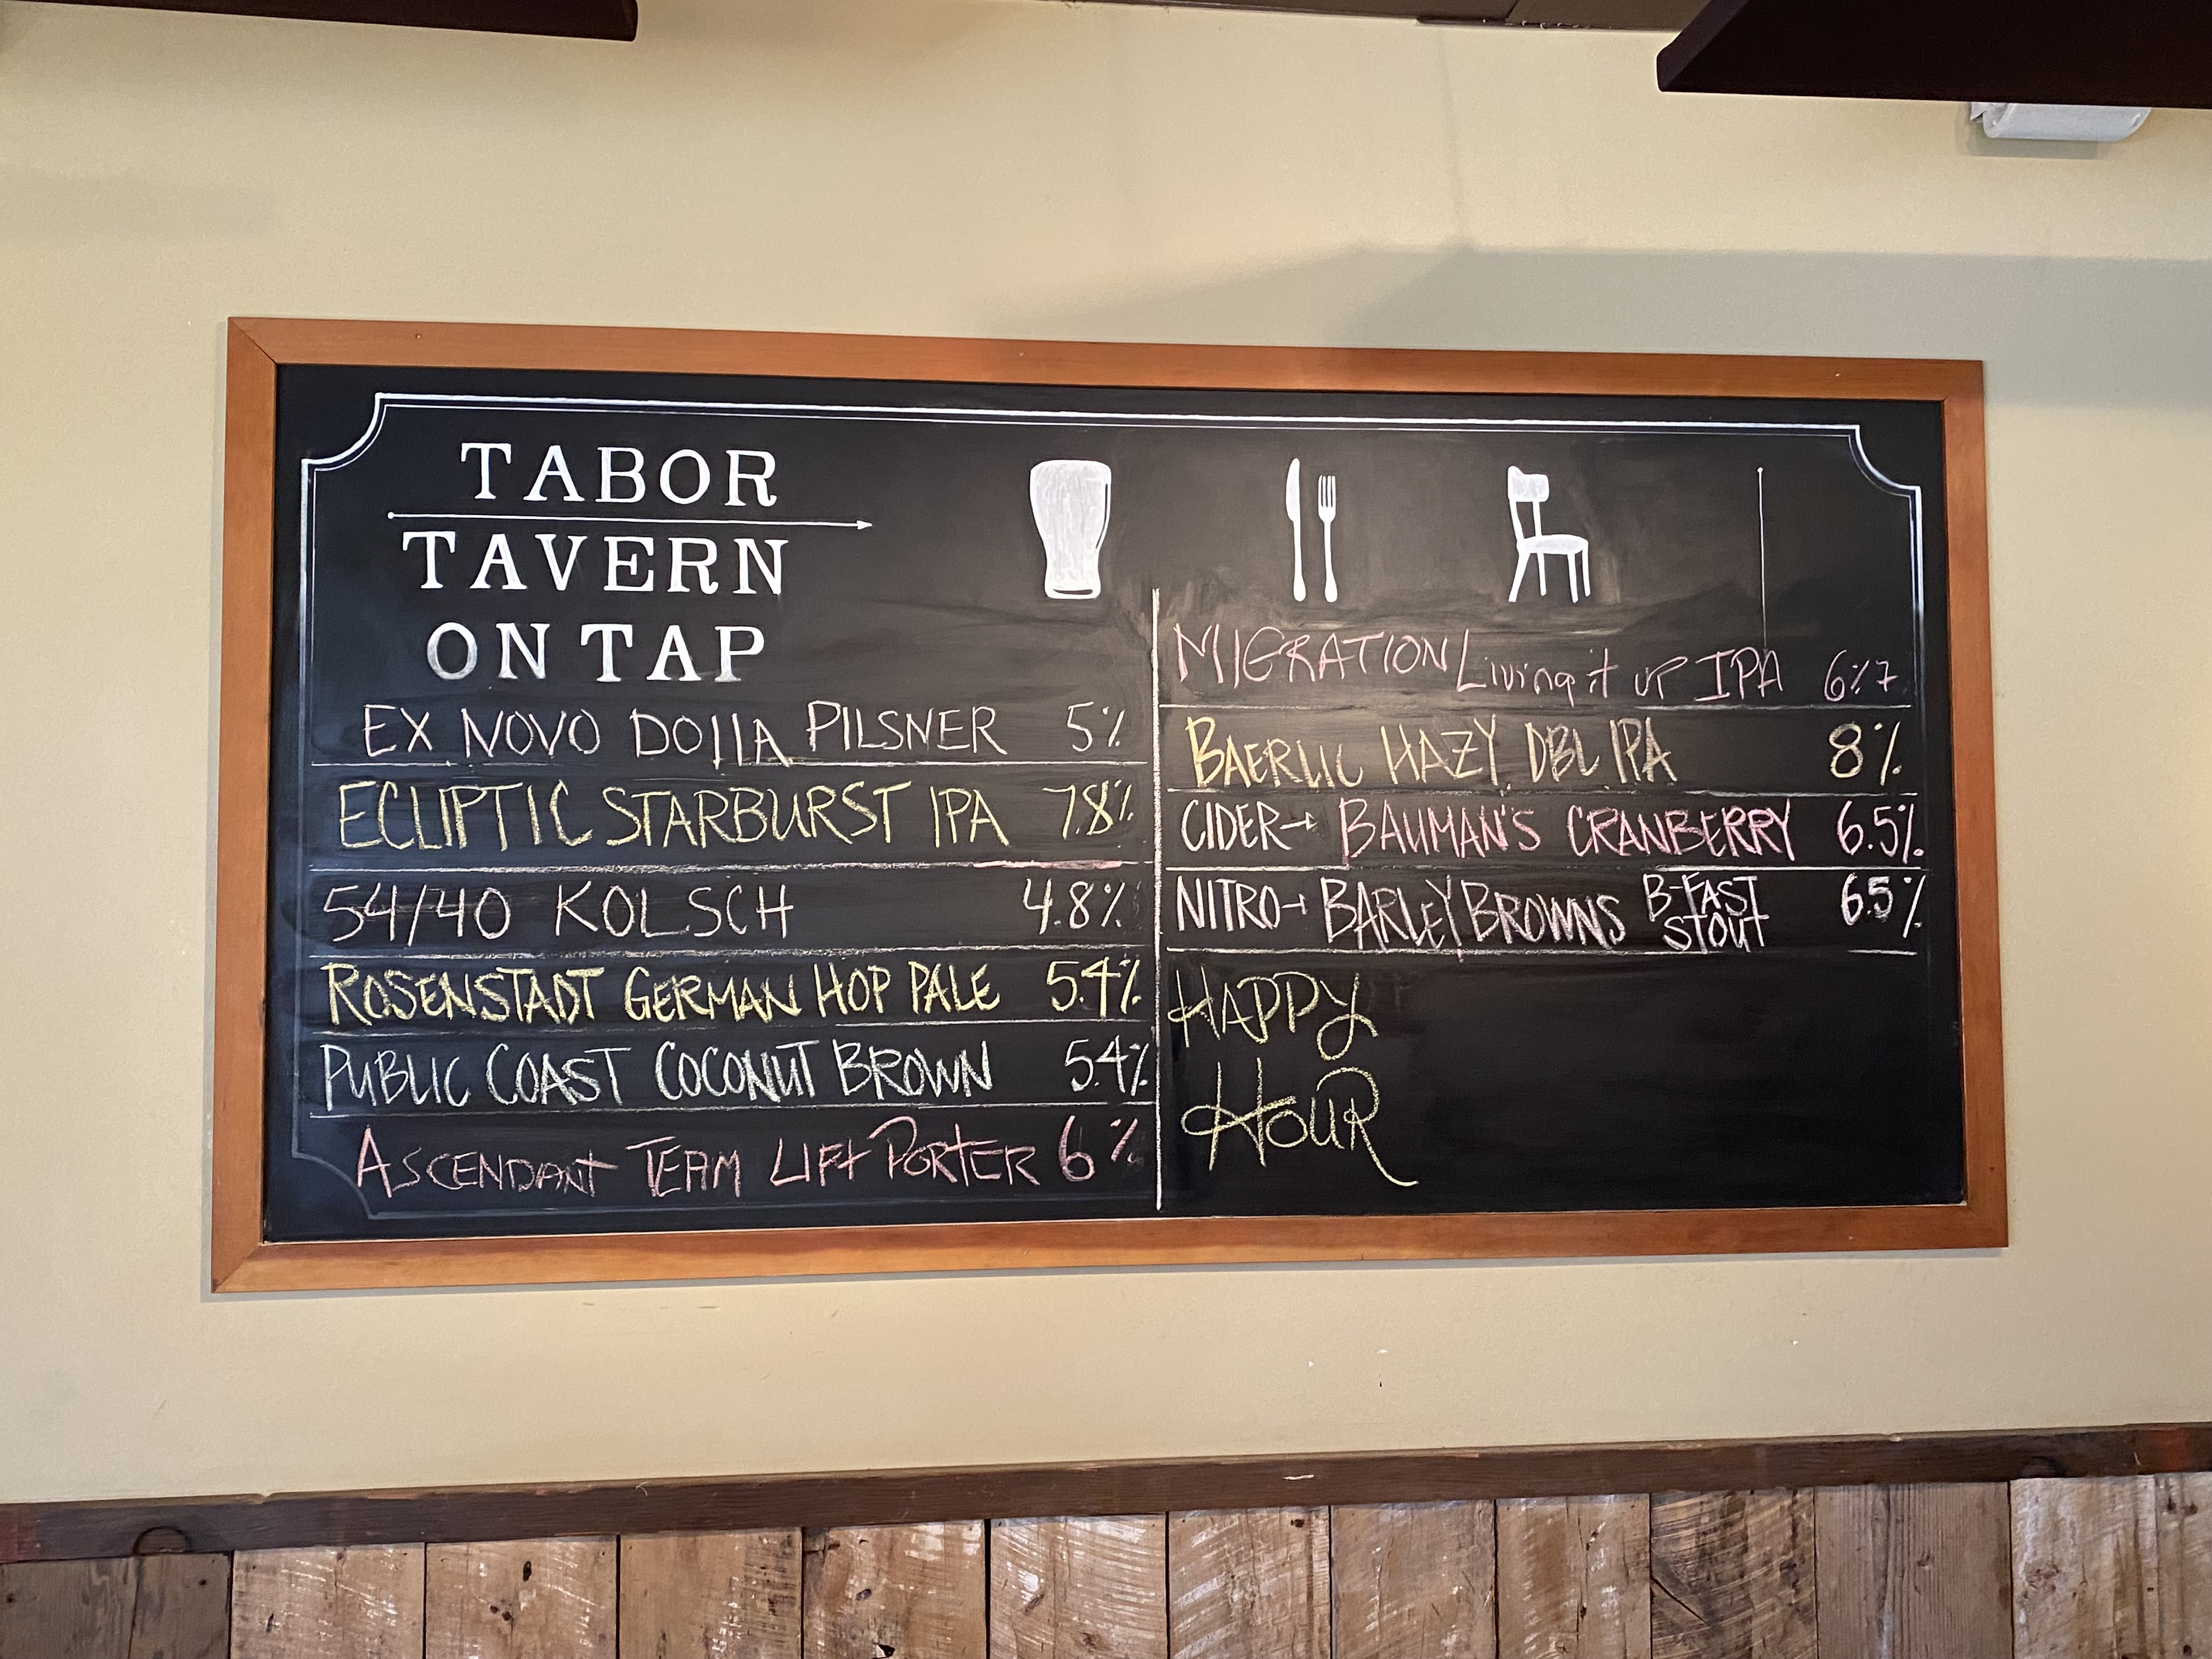 TABOR
TAVERN
ON TAP
EX NOVO DOLLA PILSNER 5%
ECLIPTIC STARBURST IPA 7.8%
54/40 KOLSCH 4.8%
ROSENSTADT GERMAN HOP PALE 5.4%
PUBLIC COAST COCONUT BROWN 5.4%
ASCENDANT TEAM LIFT PORTER 6%
MIGRATION Living it UP IPA 6%7
BAERLIC HAZY DBL IPA 8%
CIDER→ BAUMAN'S CRANBERRY 6.5%
NITRO→ BARLEY BROWNS B-FAST STOUT 6.5%
HAPPY
HOUR